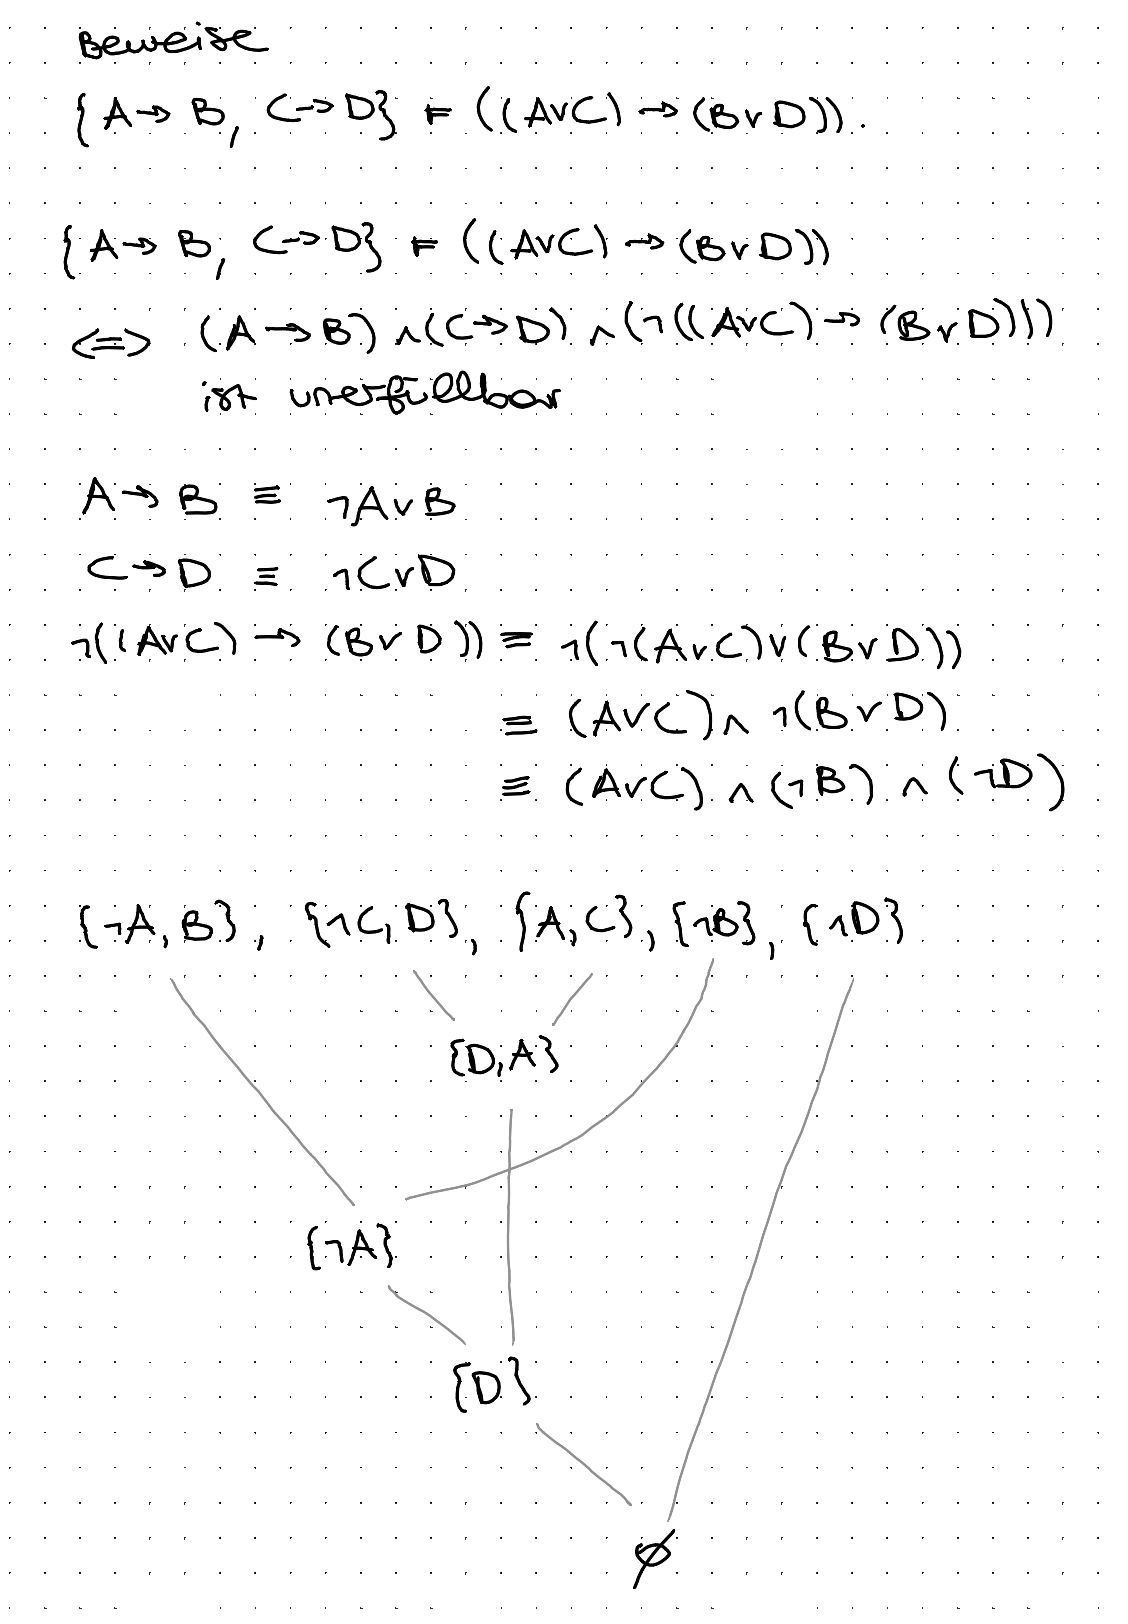 Beweise
{A→B, C→D} ⊨ ((A∨C)→(B∨D)).
{A→B, C→D} ⊨ ((A∨C)→(B∨D))
⟺ (A→B)∧(C→D)∧(¬((A∨C)→(B∨D)))
ist unerfüllbar
A→B ≡ ¬A∨B
C→D ≡ ¬C∨D
¬((A∨C)→(B∨D)) ≡ ¬(¬(A∨C)∨(B∨D))
≡ (A∨C)∧¬(B∨D)
≡ (A∨C)∧(¬B)∧(¬D)
{¬A,B}, {¬C,D}, {A,C}, {¬B}, {¬D}
{D,A}
{¬A}
{D}
∅